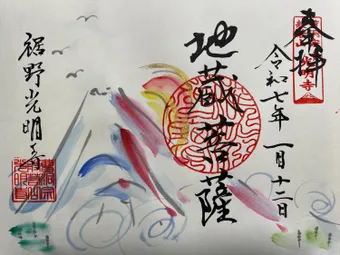 奉拝
令和七年一月十二日
地蔵菩薩
裾野光明寺